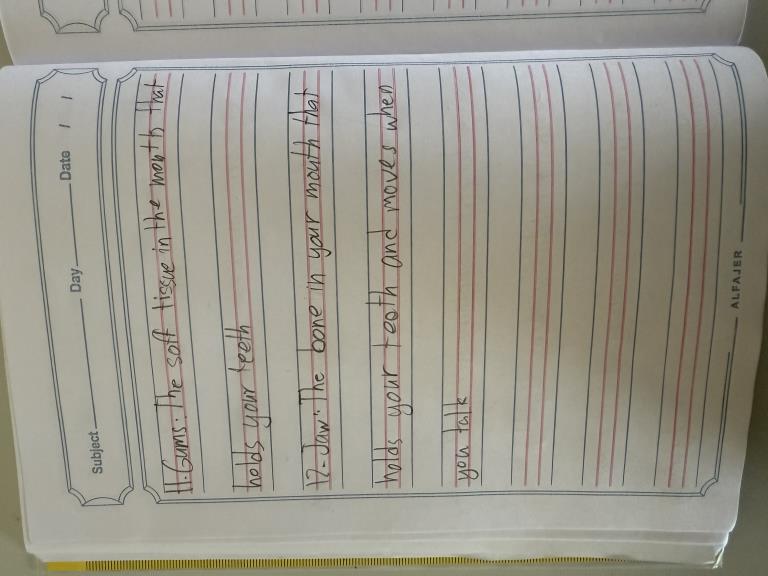 Subject Day Date / /
11-Gums: The soft tissue in the mouth that
holds your teeth
12-Jaw: The bone in your mouth that
holds your teoth and moves when
you talk
ALFAJER